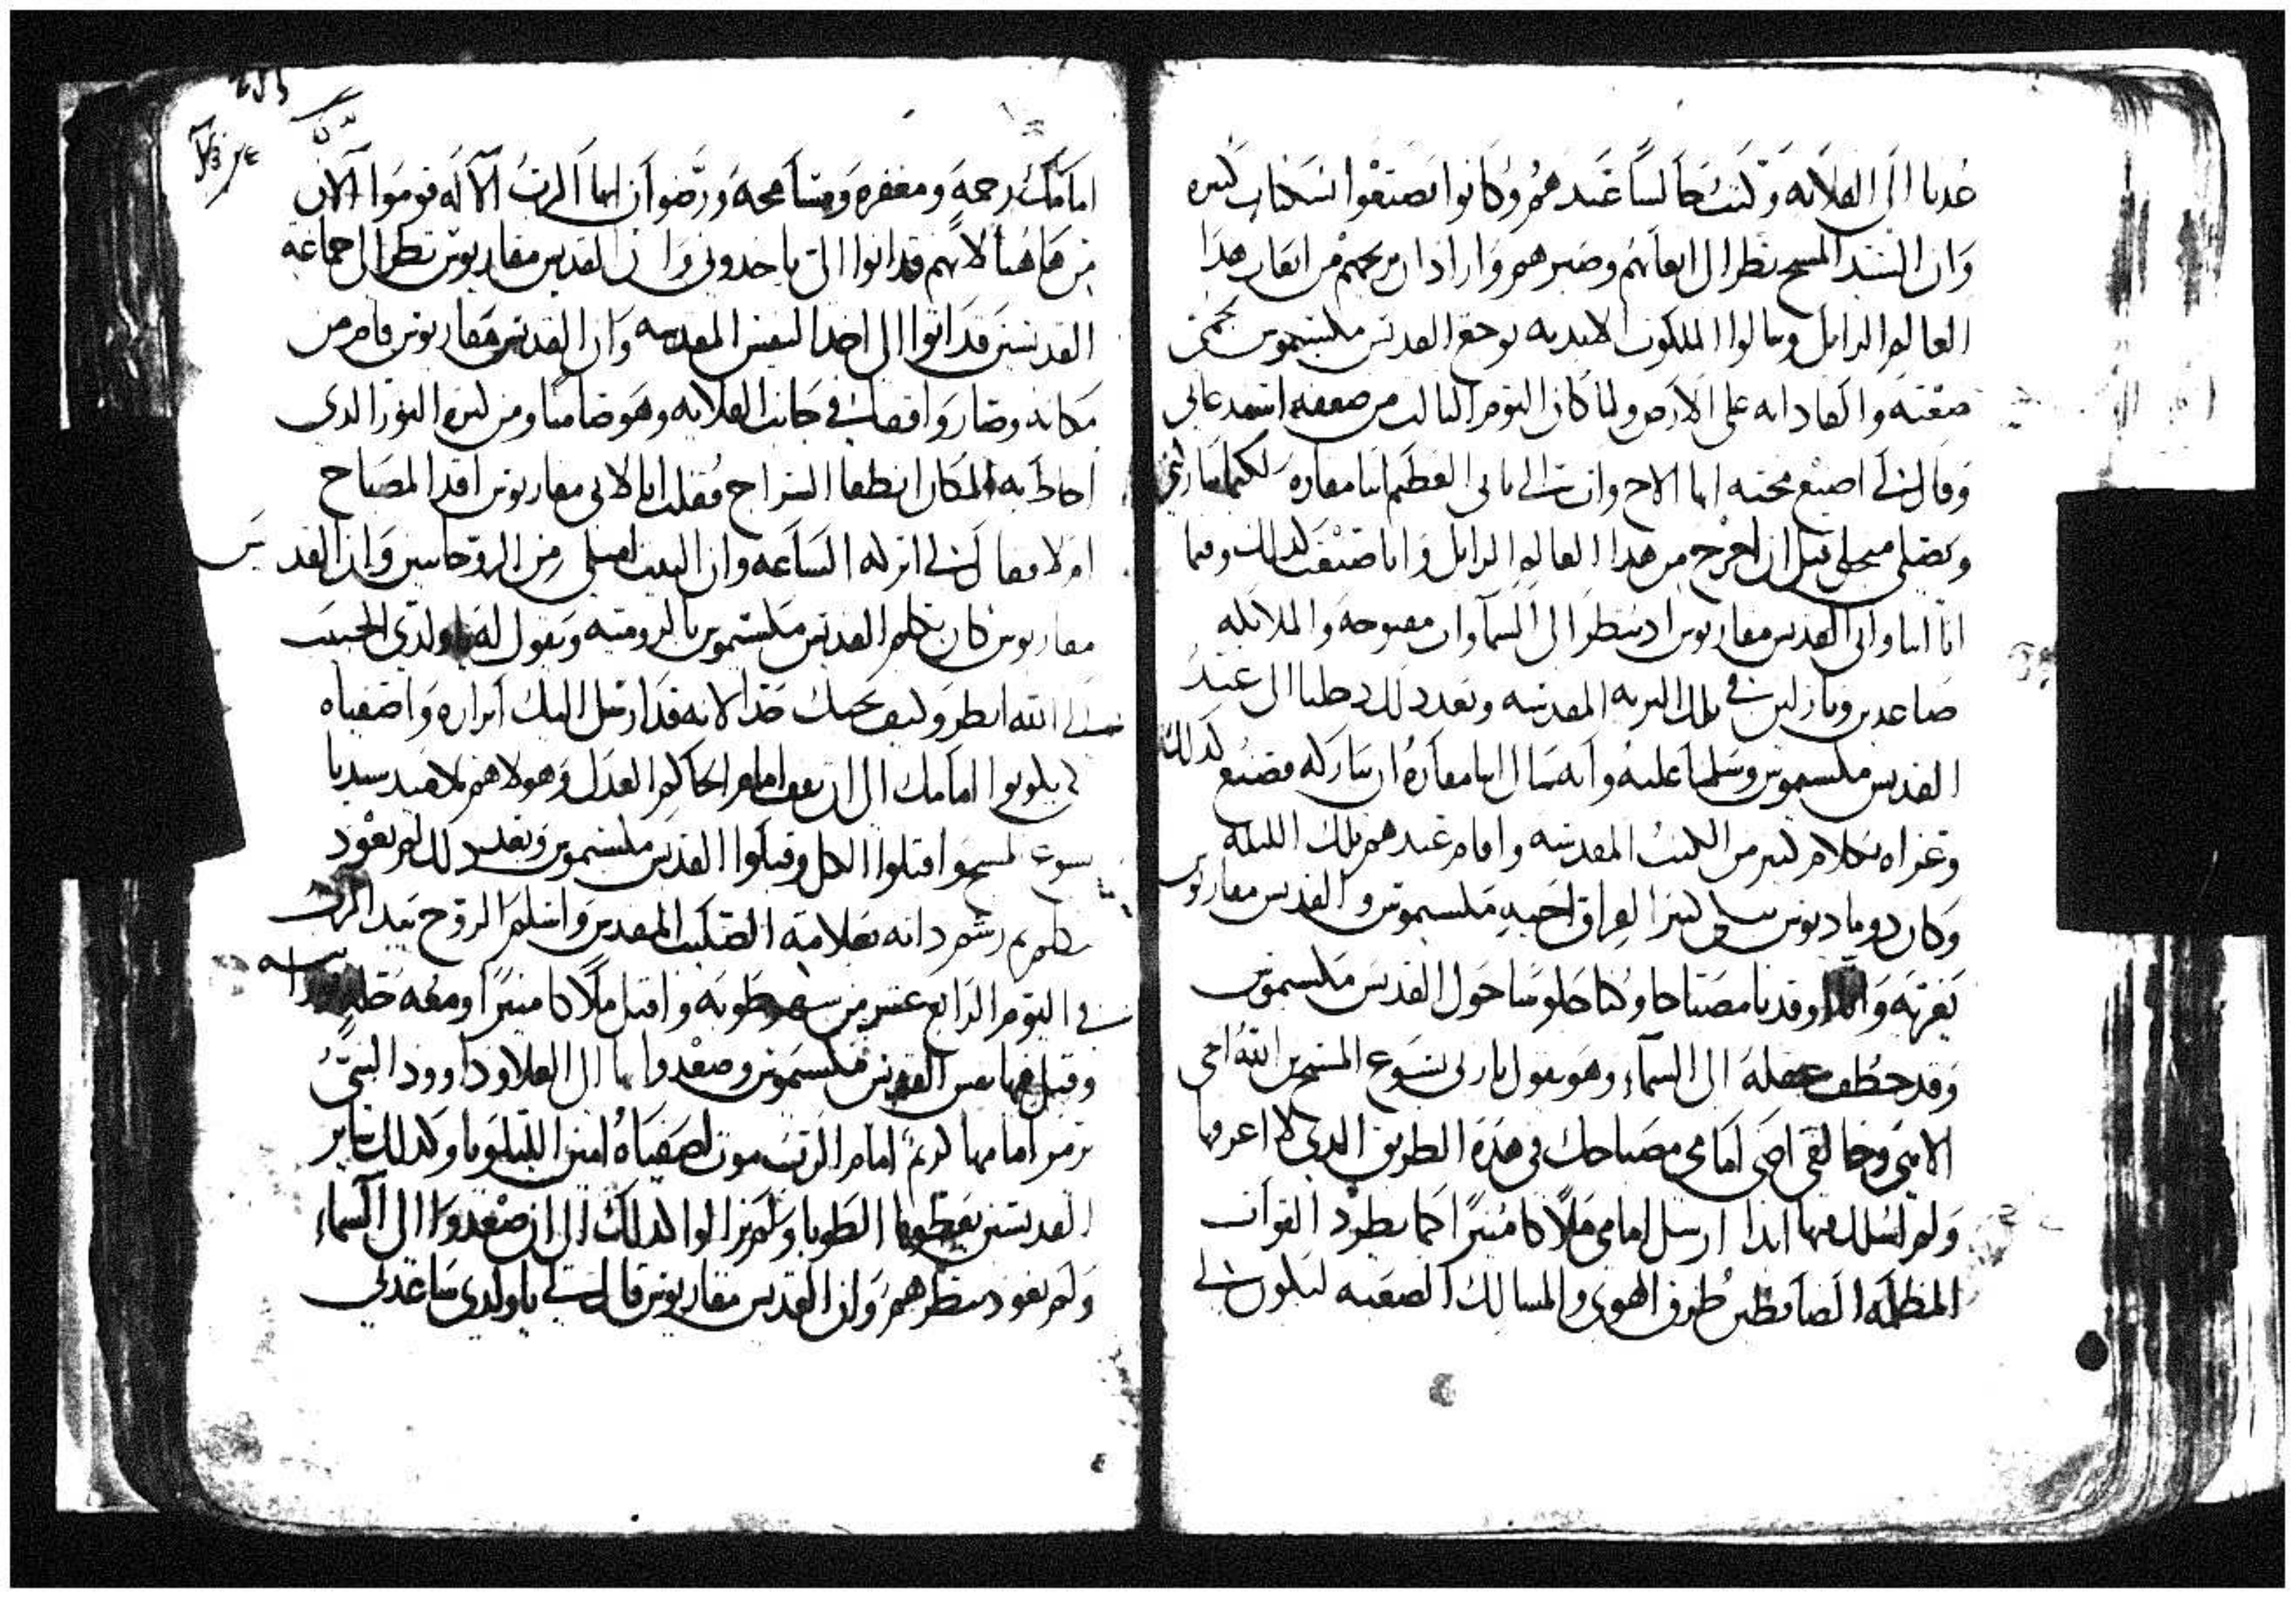 عدنا الى القلايه وكنت جالسا عندهم وكانوا يصنعوا نسكيات كثيره
وان السيد المسيح نظر الى اتعابهم وصبرهم واراد ان يريحهم من اتعاب هدا
العالم الزايل وينالوا الملكوت الابديه توجع القديس مكسيموس بحمى
صعبه والقا داته على الارض ولما كان اليوم الثالث من ضعفه استدعانى
وقال لى اصنع محبه ايها الاخ وات الى بابى العظيم انبا مقاره لكيما يباركنى
ويصلى من اجلى قبل ان اخرج من هدا العالم الزايل وانا صنعت كدلك وفيما
انا اتيا وابى القديس مقاريوس اد ننظر الى السما وان مفتوحه والملايكه
صاعدين ونازلين فى تلك البريه المقدسه وبعد دلك دخلنا الى عند
القديس مكسيموس وسلمنا عليه وانه سال انبا مقاره ان يباركه فصنع كدلك
وعزاه بكلام كثير من الكتب المقدسه واقام عندهم تلك الليله
وكان دوماديوس يبكى كثيرا لفراق اخيه مكسيموس والقديس مقاريوس
يعزيه واوقدنا مصباحا وكنا جلوسا حول القديس مكسيموس
وقد خطف عقله الى السماء وهو يقول يا ربى يسوع المسيح ابن الله الحى
الاهى وخالقى اضى امامى مصباحك فى هده الطريق الدى لا اعرفها
ولم اسلك فيها ابدا ارسل امامى ملاكا منيرا كما يطرد القوات
المظلمه الضابطين طرق الهوى والمسالك الصعبه ليكون لى
امامك رحمه ومغفره ومسامحه ورضوان ايها الرب الاله قوموا الان
من هاهنا لانهم قد اتوا الى ياخدونى وان القديس مقاريوس نظر الى جماعة
القديسين قد اتوا الى اخد النفس المقدسه وان القديس مقاريوس قام من
مكانه وصار واقفا فى جانب القلايه وهو صامتا ومن كثرة النور الدى
احاط به المكان انطفا السراج فقلت انا لابى مقاريوس اقد المصباح
ام لا فقال لى اتركه الساعه وان البيت امتلى من الروحانيين وان القديس
مقاريوس كان يكلم القديس مكسيموس بالروميه ويقول له يا ولدى الحبيب
الله انظر وكيف يحبك جدا لانه قد ارسل اليك ابراره واصفياه
لى يكونوا امامك الى ان تقف امام الحاكم العدل وهولا هم تلاميد سيدنا
يسوع المسيح واقبلوا الكل وقبلوا القديس مكسيموس وبعد دلك لم يعود
يتكلم ثم رشم داته بعلامة الصليب المقدس واسلم الروح بيد الرب
فى اليوم الرابع عشر من شهر طوبه واقبل ملاكا منيرا ومعه حله
وقبل فيها نفس القديس مكسيموس وصعدوا بها الى العلا وداوود النبى
يرمر امامها كريم امام الرب موت اصفياه امين الليلويا وكدلك ساير
القديسين يعطوه الطوبا ولم يزالوا كدلك الى ان صعدوا الى السماء
ولم نعود ننظرهم وان القديس مقاريوس قال لى يا ولدى ساعدنى